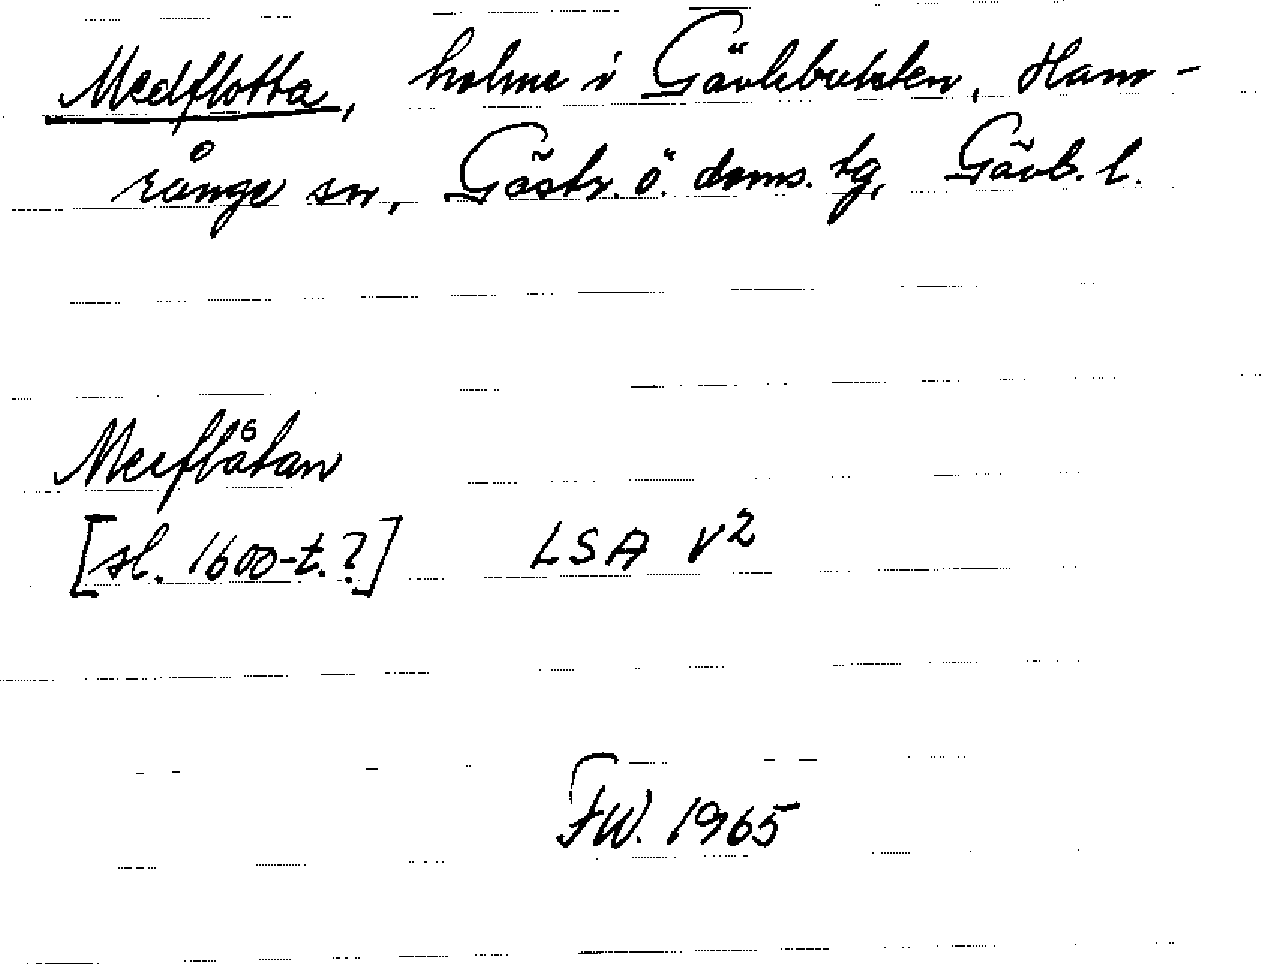 Medflotta, holme i Gävlebukten, Ham-
rånge sn, Gästr. ö. doms. tg, Gävleb. l.
Merflåtan
[sl. 1600-t.?] LSA V2
FW. 1965